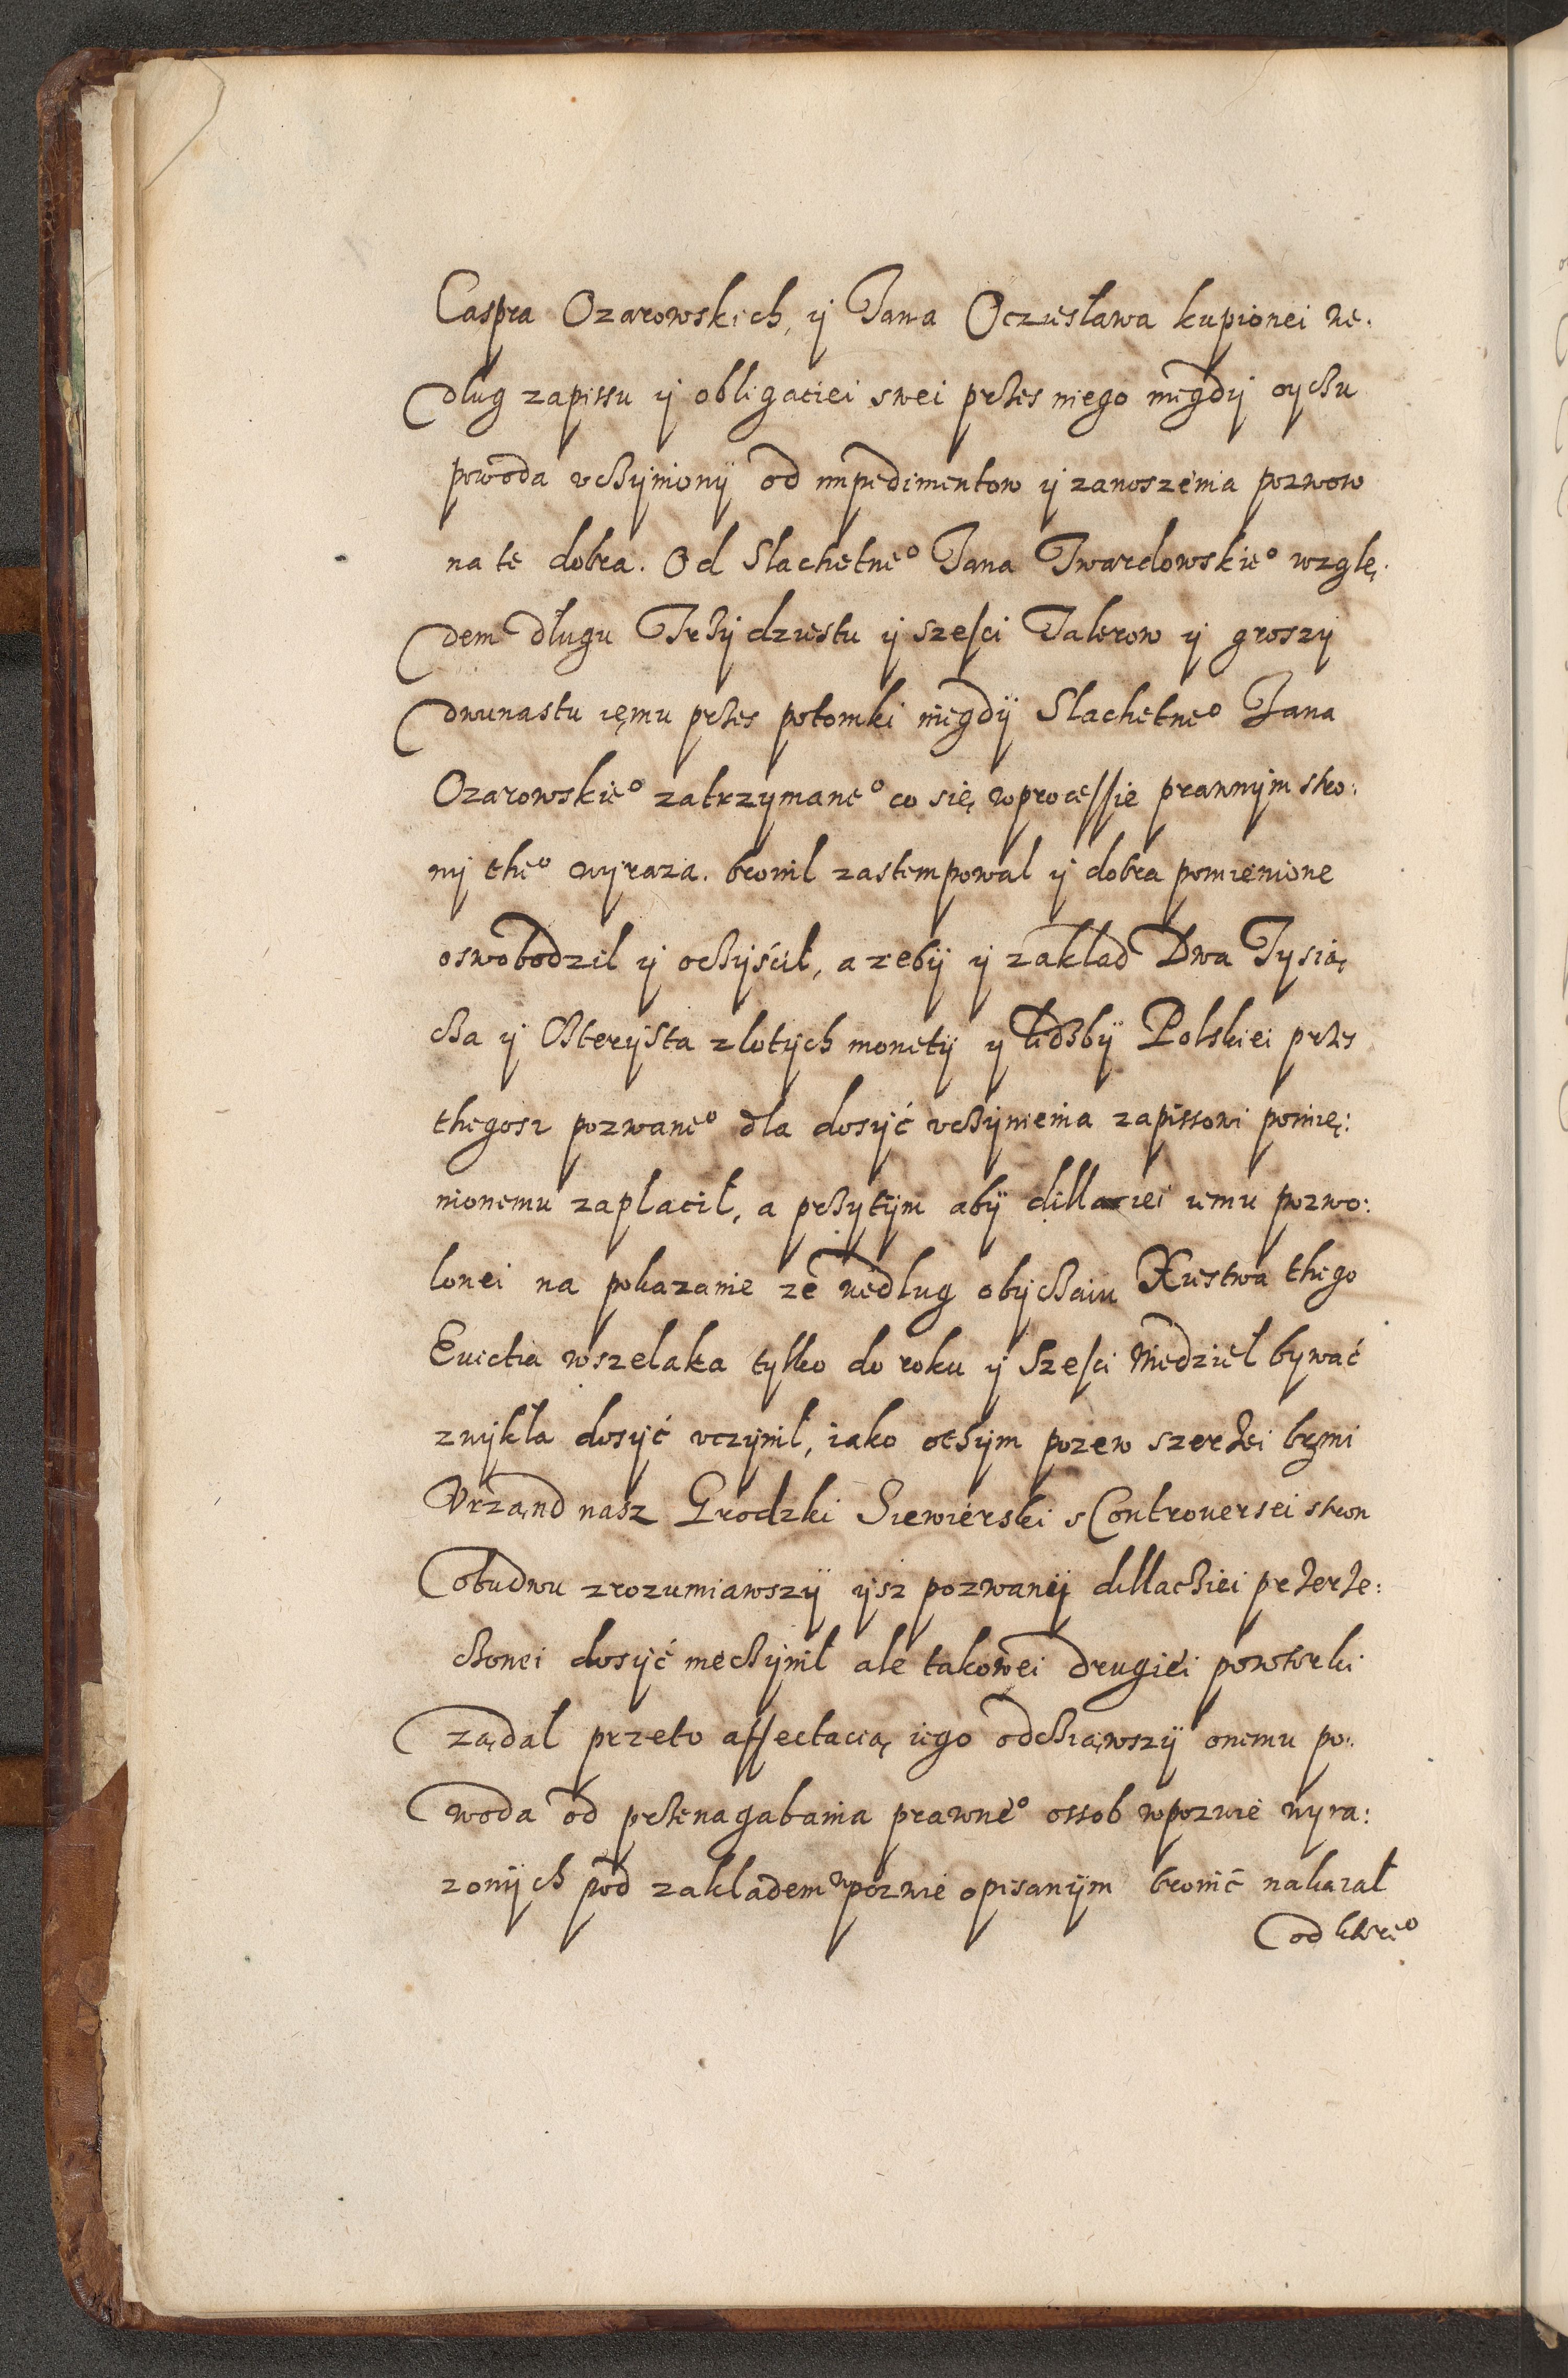 Caspra Ozarowskich, y Jana Oczesława kupionei we:
dlug zapissu y obligaciei swei przes niego niegdy oyczu
powoda vczyniony od impedimentow y zanoszenia pozwow
na te dobra. Od Slachetneº Jana Twardowskieº wzglę:
dem długu Trzydziestu y sześci Talerow y groszy
dwunastu iemu przes potomki niegdy Slachetneº Jana
Ozarowskieº zatrzymaneº co się wprocessie prawnym stro:
ny theº wyraza. bronil zastempowal y dobra pomienione
oswobodzil y oczyścił, a zeby y zaklad Dwa Tysią
cza y czterysta zlotych monety y liczby Polskiei przes
thegosz pozwaneº dla dosyć vczynienia zapissowi pomię:
nionemu zaplacił, a przytym aby dillaciei iemu pozwo:
lonei na pokazanie ze wedlug obyczaiu Xiestwa thego
Euictia wszelaka tylko do roku y sześci Niedziel bywać
zwykła dosyć vczynil, iako oczym pozew szerzei brzmi
Vrząnd nasz Grodzki Siewierski s Controuersei stron
obudwu zrozumiawszy ysz pozwany dillacziei przerze:
czonei dosyć nieczynił ale takowei drugiei powtorki
ządal przeto affectacią iego odciąwszy onemu po:
woda od przenagabania prawneº ossob wpozwie wyra:
zonych pod zakladem wpozwie opisanym bronić nakazał
od ktoreº